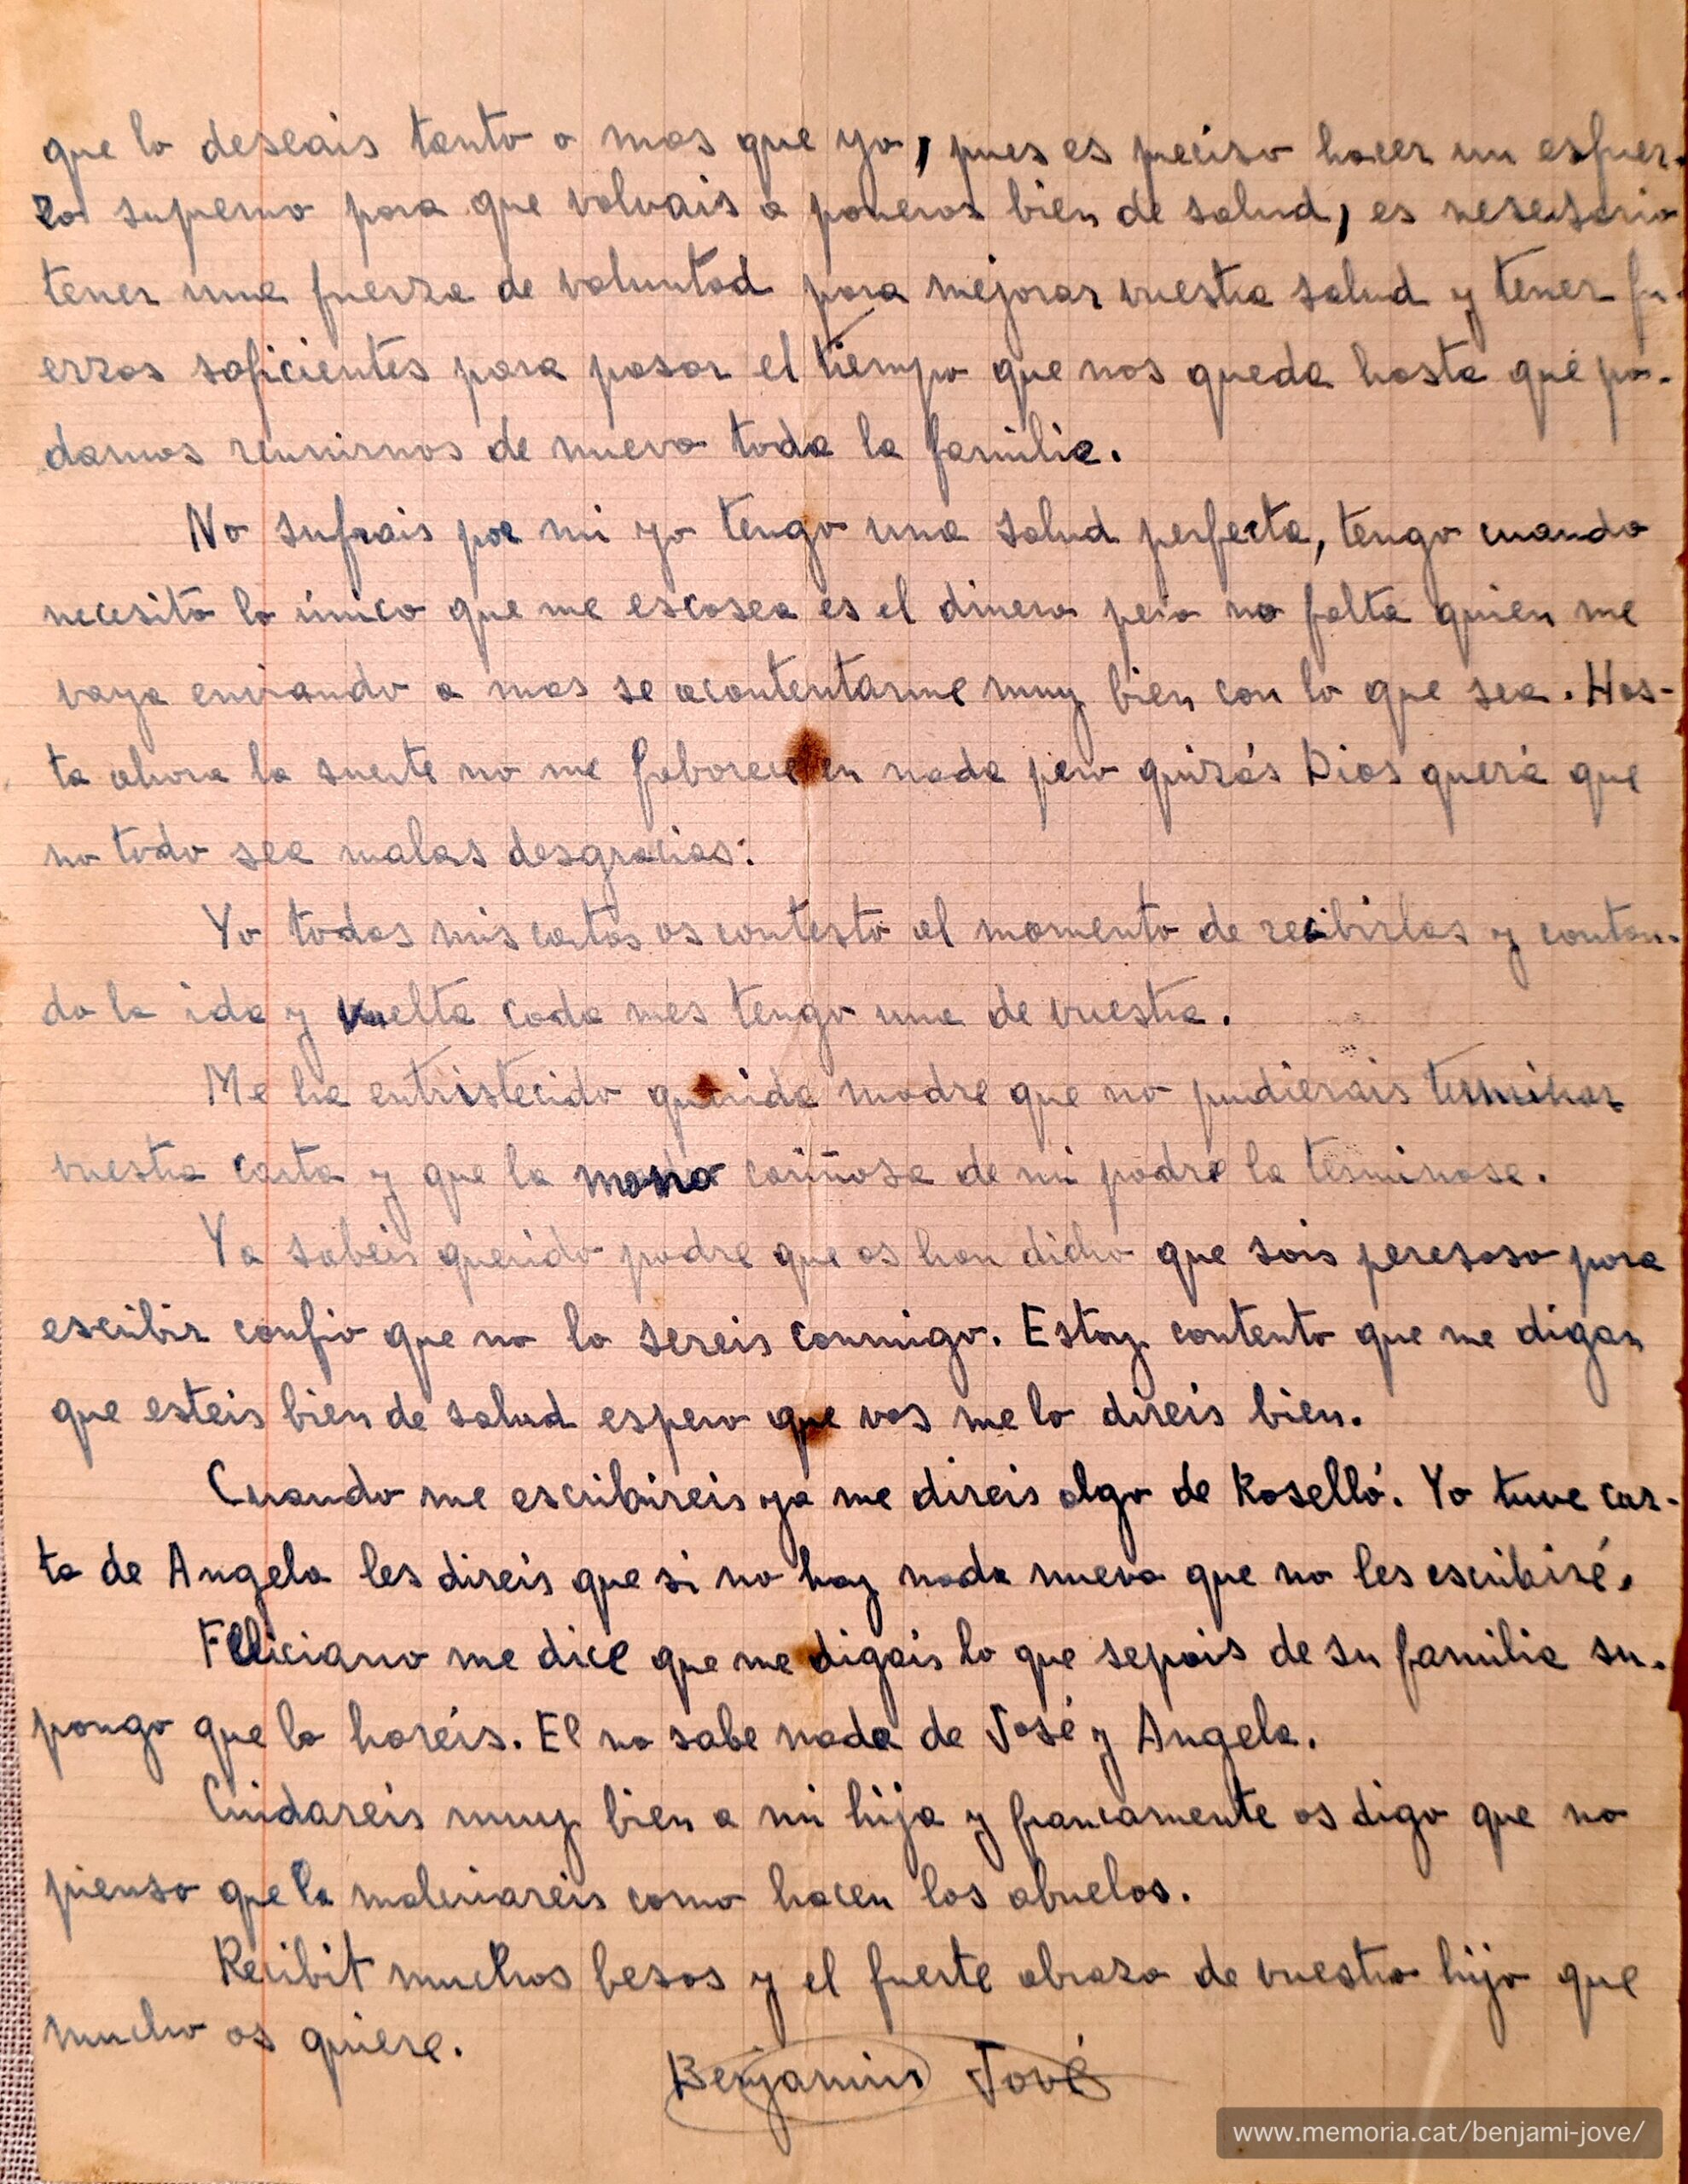 que lo deseais tanto o mas que yo, pues es preciso hacer un esfuer-
zo supremo para que volvais a poneros bien de salud, es nesesario
tener una fuerza de voluntad para mejorar vuestra salud y tener fu-
erzas soficientes para pasar el tiempo que nos queda hasta que po-
damos reunirnos de nuevo toda la familia.
No sufrais por mi yo tengo una salud perfecta, tengo cuando
necesito lo único que me escasea es el dinero pero no falta quien me
vaya enviando a mas se acontentarme muy bien con lo que sea. Has-
ta ahora la suerte no me faborece en nada pero quizás Dios querá que
no todo sea malas desgracias.
Yo todas mis cartas os contesto al momento de recibirlas y contan-
do la ida y vuelta cada mes tengo una de vuestra.
Me ha entristecido querida madre que no pudierais terminar
vuestra carta y que la mano cariñosa de mi padre la terminase.
Ya sabeis querido padre que os han dicho que sois peresoso para
escribir confio que no lo sereis conmigo. Estoy contento que me digan
que esteis bien de salud espero que vos me lo direis bien.
Cuando me escribireis ya me direis algo de Roselló. Yo tuve car-
ta de Angela les direis que si no hay nada nuevo que no les escribiré.
Feliciano me dice que me digais lo que sepais de su familia su-
pongo que lo haréis. El no sabe nada de José y Angela.
Cuidareis muy bien a mi hija y francamente os digo que no
pienso que la malcriaréis como hacen los abuelos.
Recibit muchos besos y el fuerte abrazo de vuestro hijo que
mucho os quiere.
Benjamin Jové
www.memoria.cat/benjami-jove/